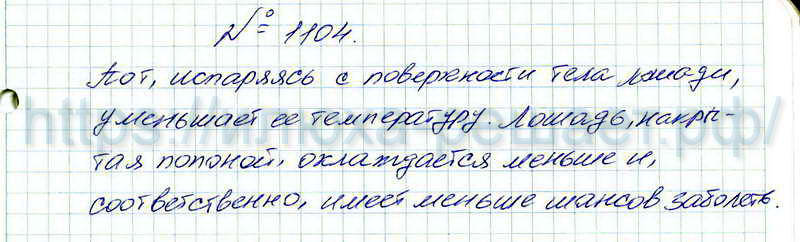 № 1104.
Пот, испаряясь с поверхности тела лошади,
уменьшает ее температуру. Лошадь, накры-
тая попоной, охлаждается меньше и,
соответственно, имеет меньше шансов заболеть.